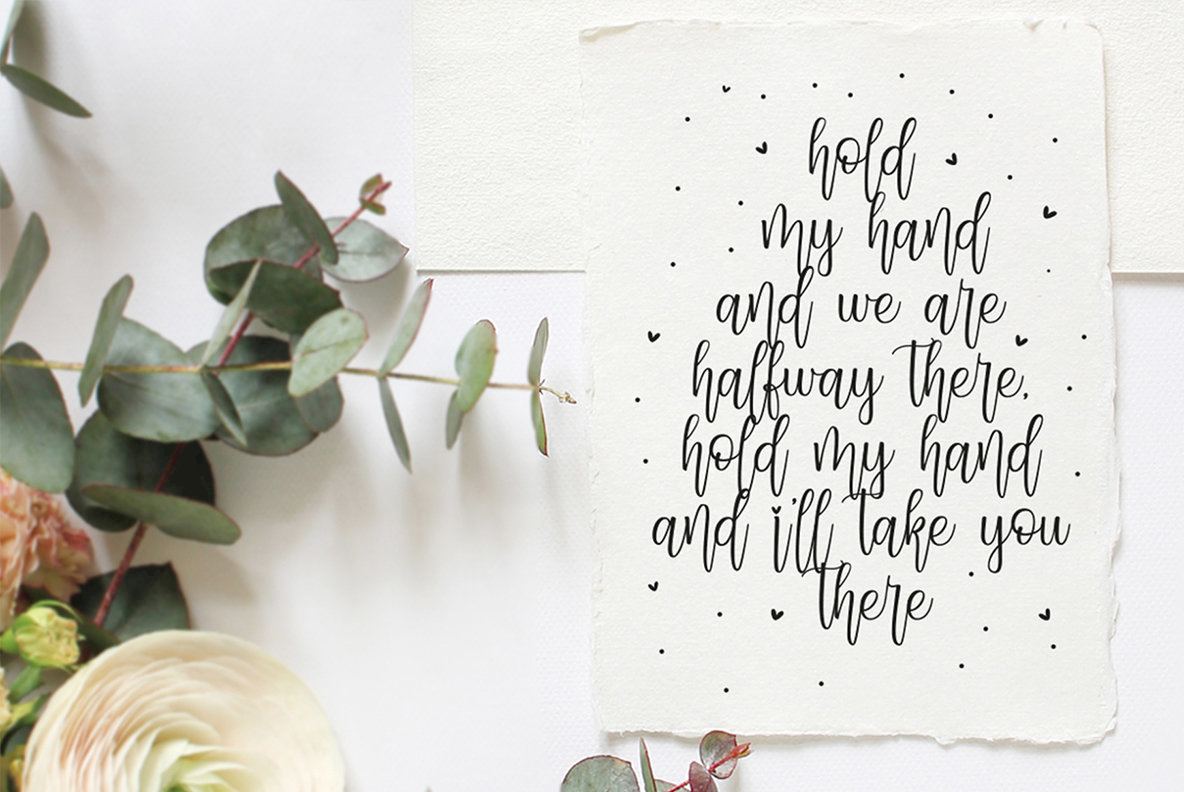 hold
my hand
and we are
halfway there,
hold my hand
and i'll take you
there